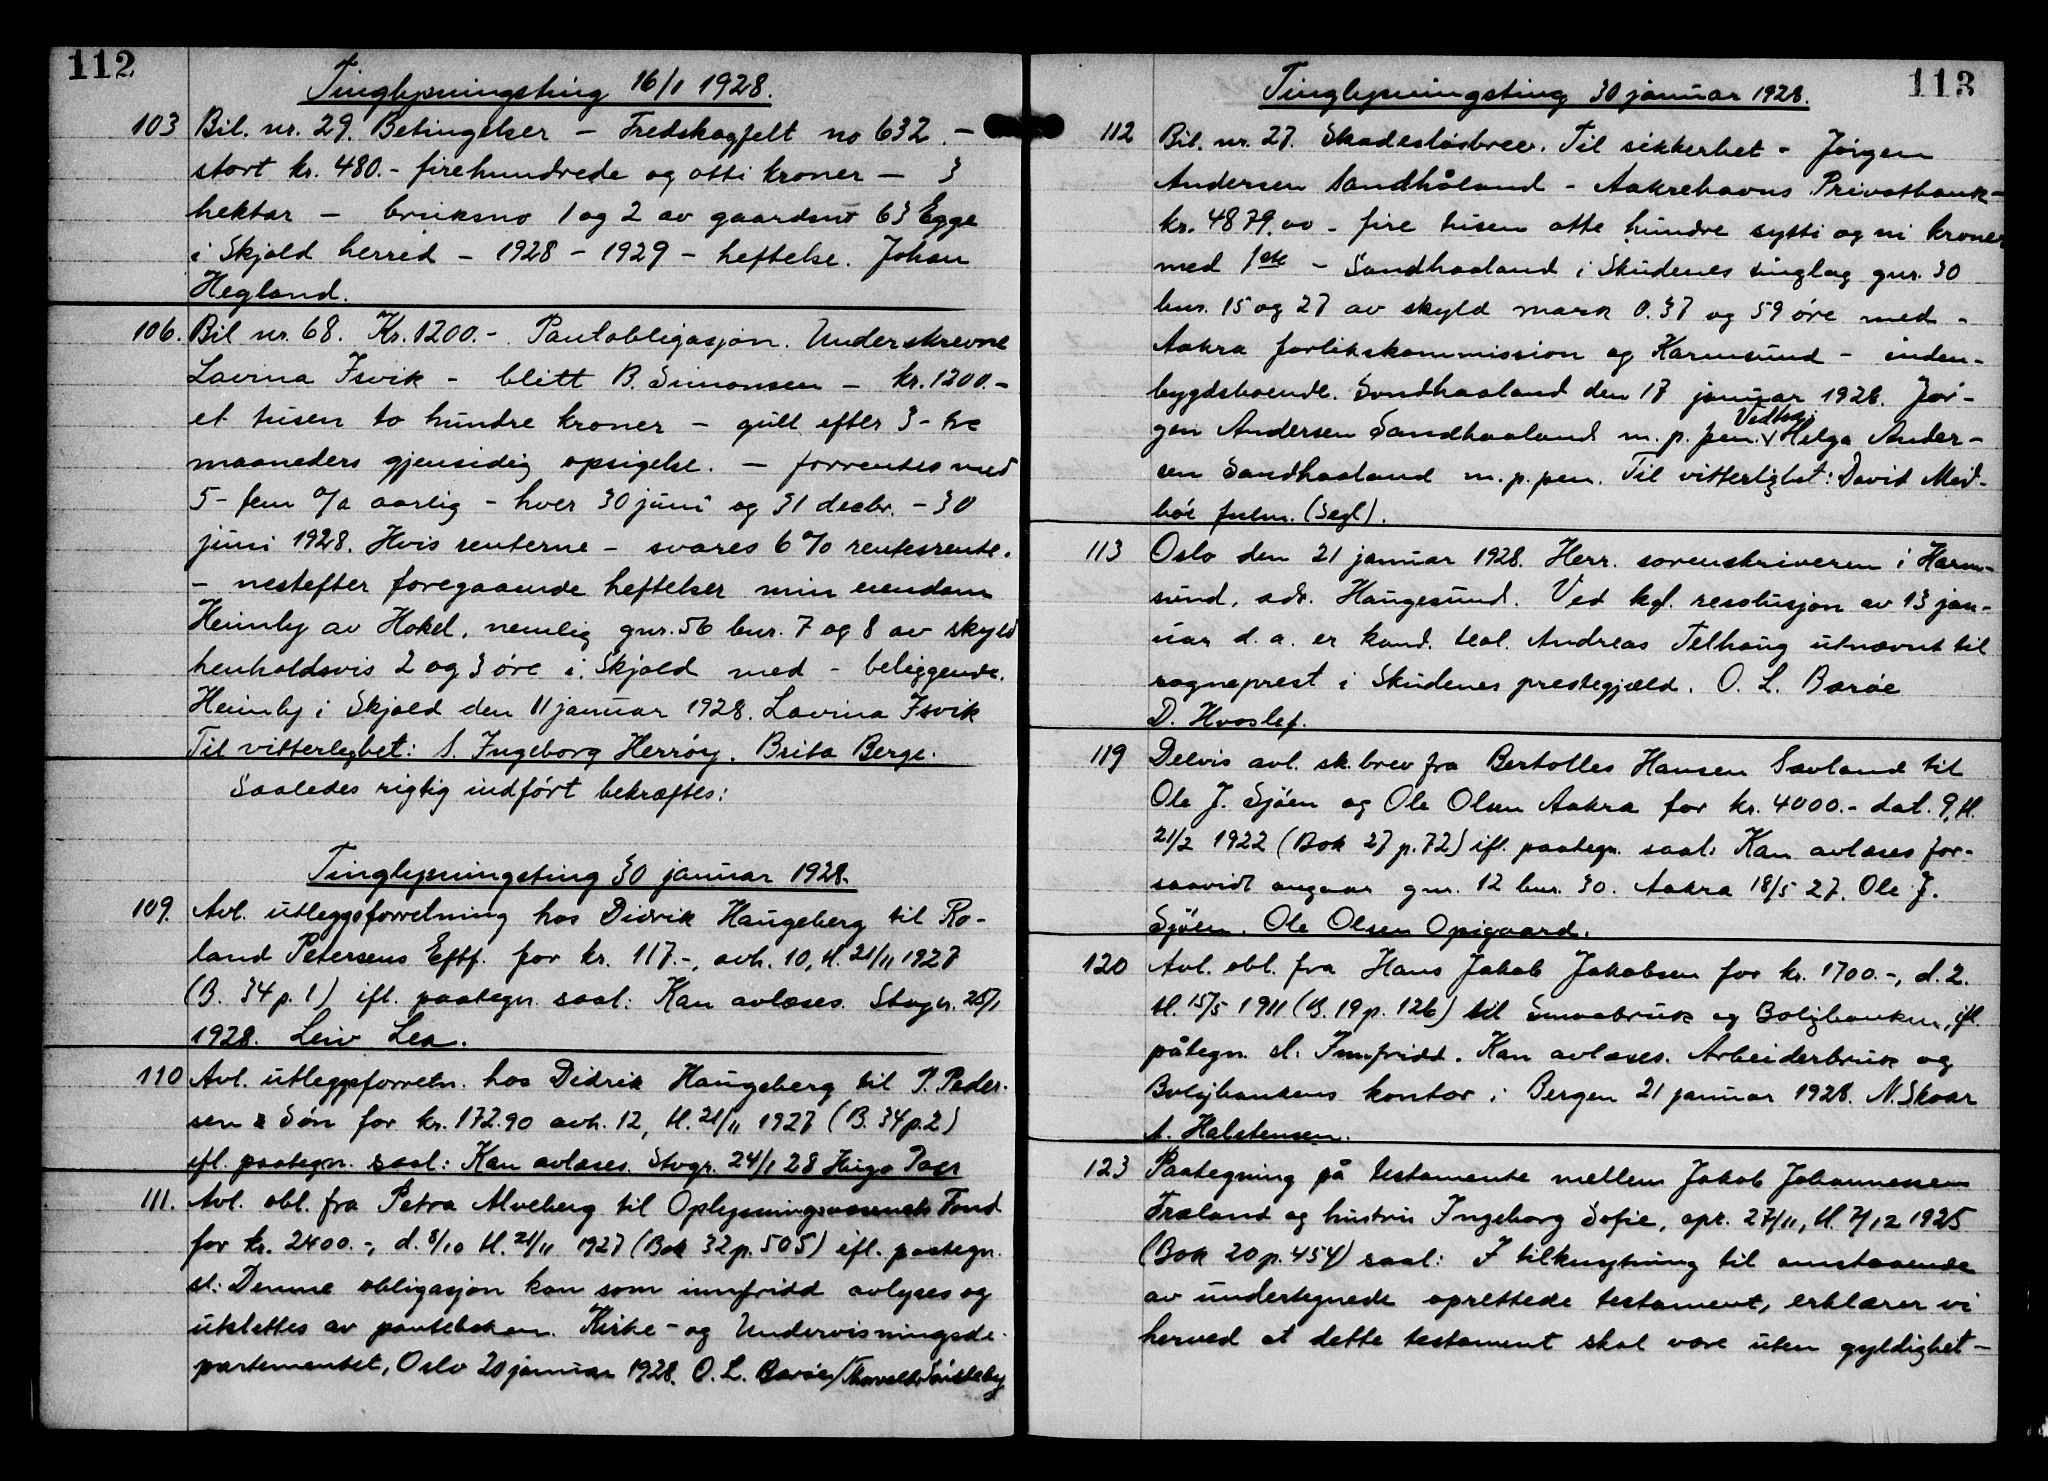 112
Tinglysningsting 16/1 1928.
103 Bil. nr. 29. Betingelser – Fredskogfelt no 632. –
stort kr. 480.- firehundrede og otti kroner – 3
hektar – bruksno 1 og 2 av gaardsno 63 Egge
i Skjold herred – 1928 – 1929 – heftelse. Johan
Hegland.
106. Bil nr. 68. Kr. 1200.-. Pantobligasjon. Underskrevne
Lavina Isvik - blitt B. Simonsen – kr. 1200.-
et tusen to hundre kroner – gull efter 3- tre
maaneders gjensidig opsigelse. – forrentes med
5- fem % aarlig – hver 30 juni og 31 decbr. – 30
juni 1928. Hvis renterne – svares 6% rentesrente.
– nestefter foregaaende heftelser min eiendom
Heimly av Hokel, nemlig gnr. 56 bnr. 7 og 8 av skyld
henholdsvis 2 og 3 øre i Skjold med – beliggende.
Heimly i Skjold den 11 januar 1928. Lavina Isvik
Til vitterleghet: S. Ingeborg Herrøy. Brita Berge.
Saaledes rigtig indført bekræftes:
Tinglysningsting 30 januar 1928.
109. Avl. utleggsforretning hos Didrik Haugeberg til Ro-
land Petersens Eftf. for kr. 117.-, avh. 10, tl. 21/11 1927
(B. 34 p. 1) ifl. paategn. saal: Kan avlæses. Stvgr. 25/1
1928. Leiv Lea.
110 Avl. utleggsforretn. hos Didrik Haugeberg til P. Peder-
sen & Søn for kr. 172.90 avh. 12, tl. 21/11 1927 (B. 34 p. 2)
ifl. paategn. saal: Kan avlæses. Stvgr. 24/1 28 Hugo
111. Avl. obl. fra Petra Alveberg til Oplysningsvæsenets Fond
for kr. 2400.-, d. 8/10 tl. 21/11 1927 (Bok 32 p. 505) ifl. paategn.
sl: Denne obligasjon kan som innfridd avlyses og
utslettes av panteboken. Kirke- og Undervisningsde-
partementet, Oslo 20 januar 1928. O. L. Barøe/
113
Tinglysningsting 30 januar 1928.
112 Bil. nr. 27. Skadesløsbrev. Til sikkerhet - Jørgen
Andersen Sandhåland – Aakrehavns Privatbank –
kr. 4879.00 – fire tusen otte hundre sytti og ni kroner
med 1ste – Sandhaaland i Skudenes tinglag gnr. 30
bnr. 15 og 27 av skyld mark 0.37 og 59 øre med –
Aakra forlikskommission og Karmsund – inden-
bygdsboende. Sandhaaland den 17 januar 1928. Jør-
gen Andersen Sandhaaland m. p. pen. Vedtas Helga Ander-
sen Sandhaaland m. p. pen. Til vitterlighet: David Med-
bøe fulm. (Segl).
113 Oslo den 21 januar 1928. Herr. sorenskriveren i Karm-
sund, adr. Haugesund. Ved kgl. resolusjon av 13 jan-
uar d. a. er kand. teol. Andreas Telhaug utnævnt til
sogneprest i Skudenes prestegjæld. O. L. Barøe
D. Hvoslef.
119 Delvis avl. sk.brev fra Bertolles Hansen Sævland til
Ole J. Sjøen og Ole Olsen Aakra for kr. 4000.- dat. 9, tl.
21/2 1922 (Bok 27 p. 72) ifl. paategn. saal: Kan avlæses for-
saavidt angaar gnr. 12 bnr. 30. Aakra 18/5 27. Ole J.
Sjøen. Ole Olsen Opigaard.
120 Avl. obl. fra Hans Jakob Jakobsen for kr. 1700.-, d. 2.
tl. 15/5 1911 (B. 19 p. 126) til Smaabruk og Boligbanken, ifl.
påtegn. sl. Innfridd. Kan avlæses. Arbeiderbruk og
Boligbankens kontor i Bergen 21 januar 1928. N. Skaar
A. Halstensen.
123 Paategning på testamente mellem Jakob Johannessen
Træland og hustru Ingeborg Sofie, opr. 27/11, tl. 7/12 1925
(Bok 20 p. 454) saal: I tilknytning til omstaaende
av undertegnede oprettede testament, erklærer vi
herved at dette testament skal være uten gyldighet –